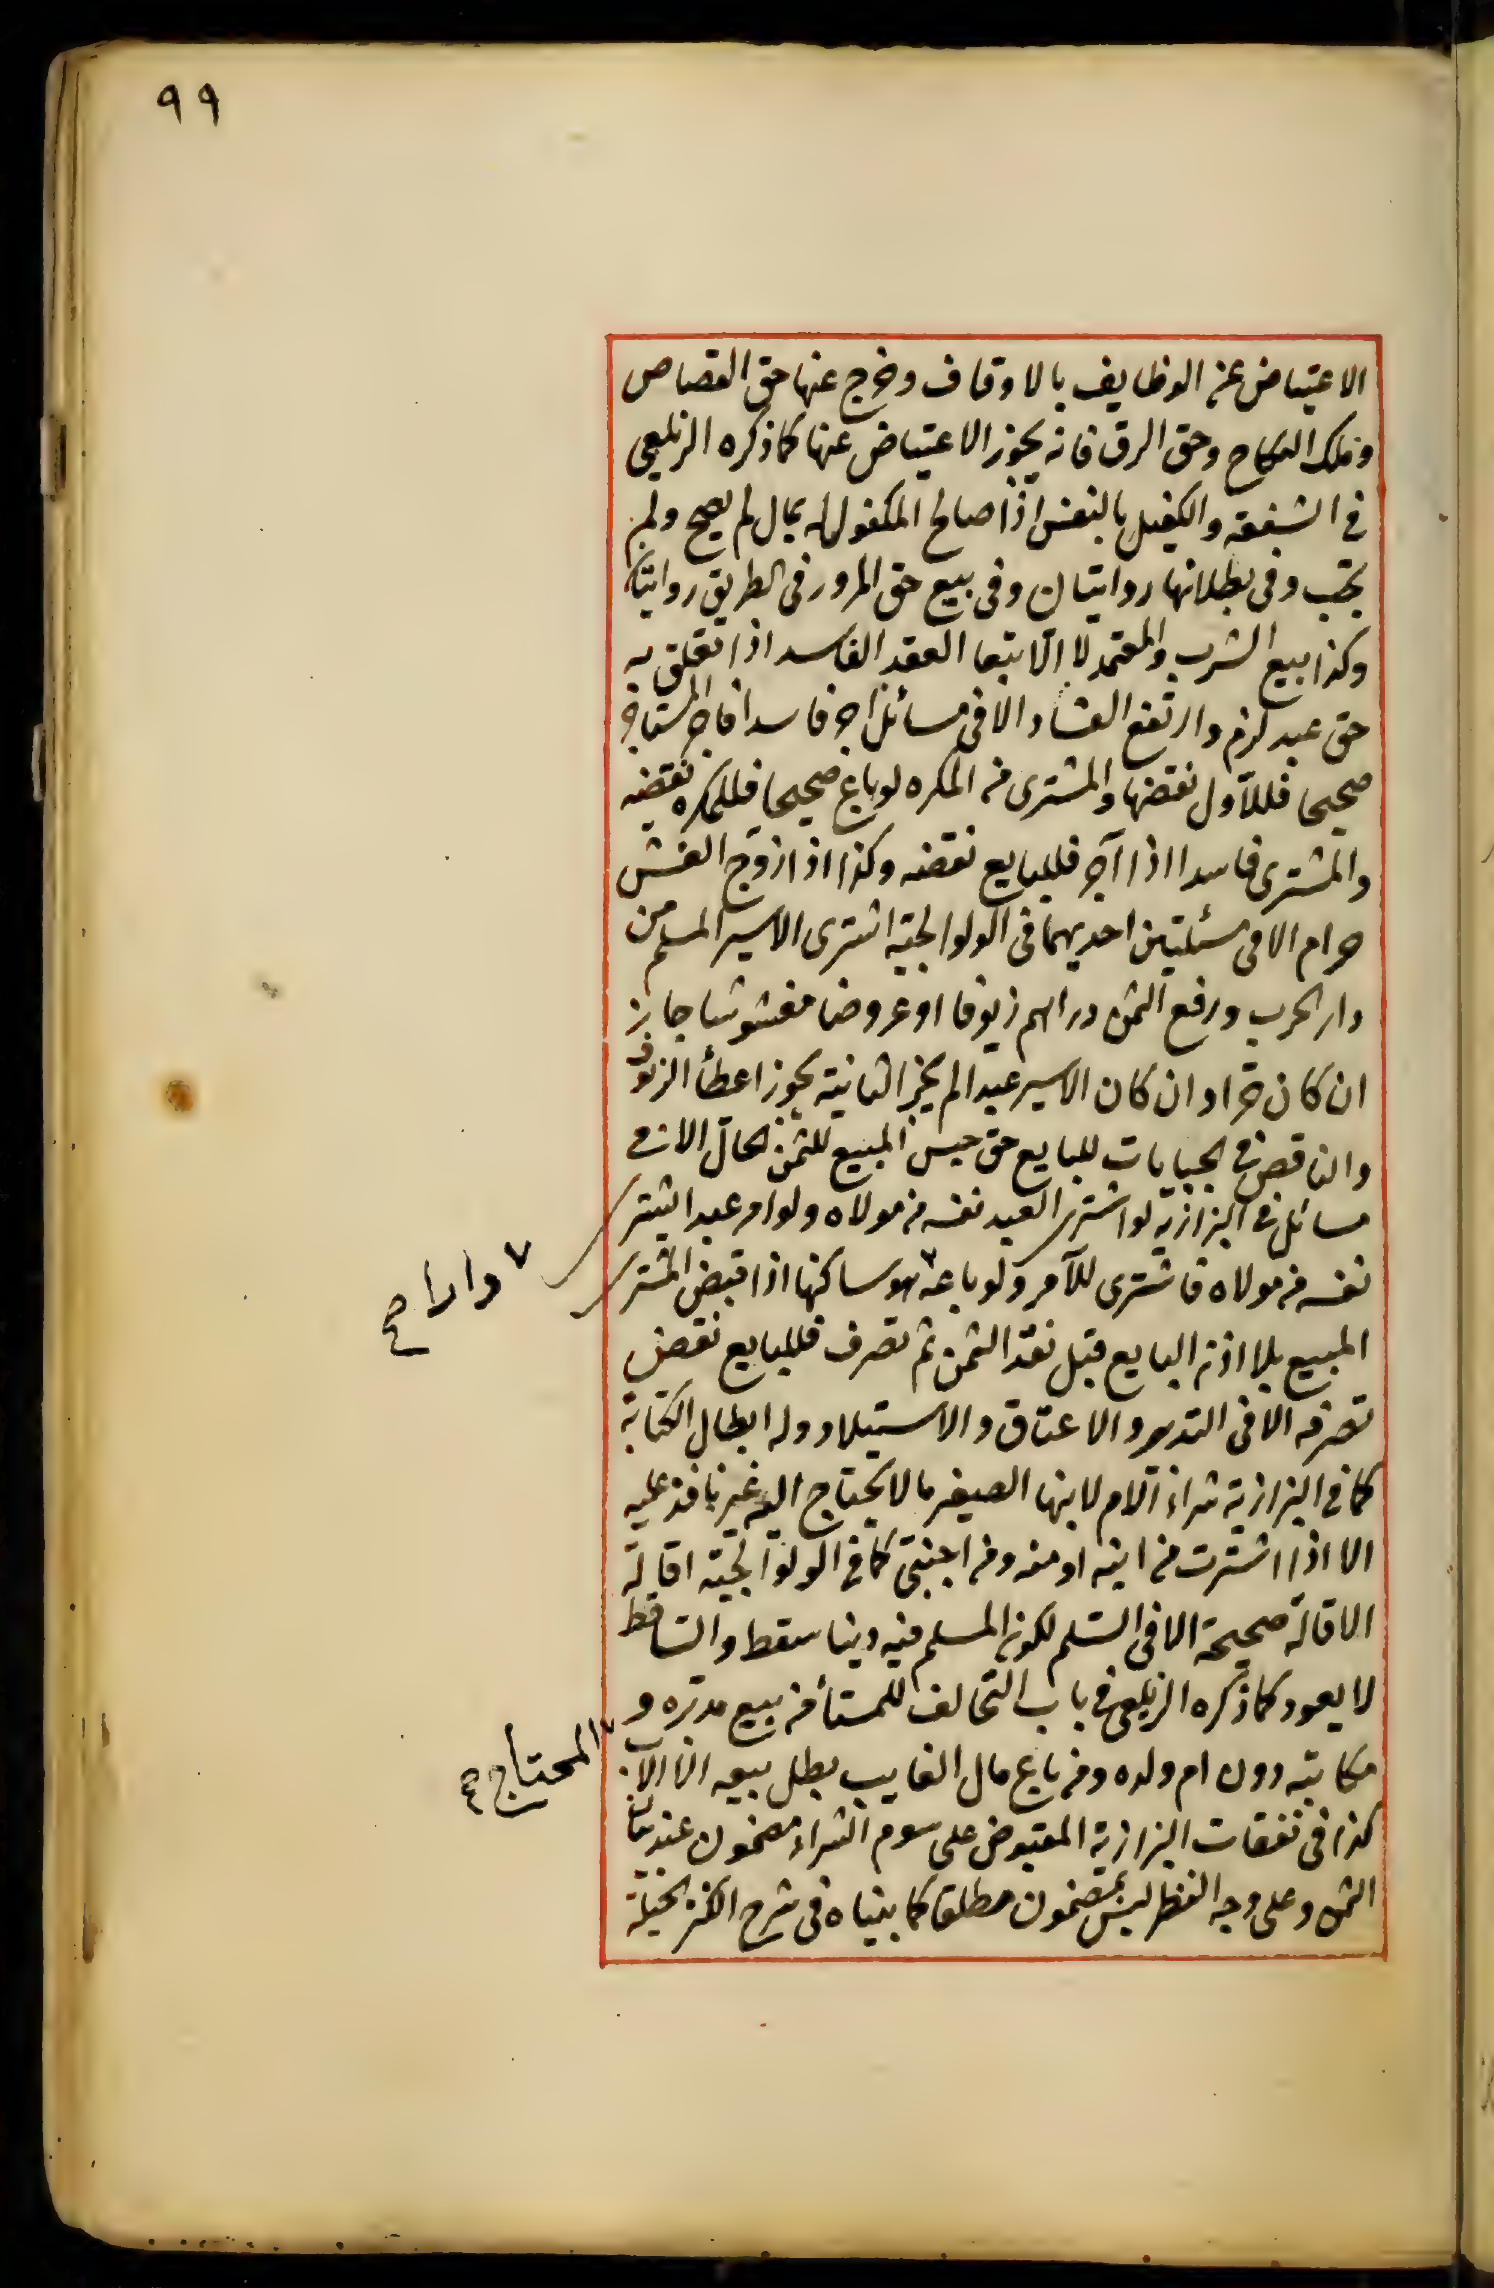 ٩٩
الاعتياض عن الوظايف بالاوقاف وخرج عنها حق القصاص
وملك النكاح وحق الرق فانه يجوز الاعتياض عنها كما ذكره الزيلعى
فى الشفعة والكفيل بالنفس اذا صالح المكفول له بمال لم يصح ولم
يجب وفى بطلانها روايتان وفى بيع حق المرور فى الطريق روايتان
وكذا بيع الشرب والمعتمد لا الا تبعا العقد الفاسد اذا تعلق به
حق عبد لزم وارتفع الفساد الا فى مسائل اجر فاسدا فاجر المستاجر
صحيحا فللاول نقضها والمشترى من المكره لو باع صحيحا فللمكره نقضه
والمشترى فاسدا اذا آجر فللبايع نقضه وكذا اذا زوج الغش
حرام الا فى مسئلتين احديهما فى الولوالجية اشترى الاسير المسلم من
دار الحرب ودفع الثمن دراهم زيوفا او عروضا مغشوشا جاز
ان كان حرا وان كان الاسير عبدا لم يجز الثانية يجوز اعطأ الزيوف
والناقص فى الجبايات للبايع حق حبس المبيع للثمن الحال الا فى
مسائل فى البزازية لو اشترى العبد نفسه من مولاه ولو امر عبدا ليشترى
نفسه من مولاه فاشترى للآمر ولو باعه ٧ هو ساكنها اذا قبض المشترى
٧ دارا صح
المبيع بلا اذن البايع قبل نقد الثمن ثم تصرف فللبايع نقض
تصرفه الا فى التدبير والاعتاق والاستيلاد وله ابطال الكتابة
كما فى البزازية شراء الام لابنها الصغير ما لا يحتاج اليه غير نافذ عليه
الا اذا اشترت من ابيه او منه ومن اجنبى كما فى الولوالجية اقالة
الاقالة صحيحة الا فى السلم لكون المسلم فيه دينا سقط والساقط
لا يعود كما ذكره الزيلعى فى باب التحالف للمستأمن بيع مدبره و
مكاتبه دون ام ولده ومن باع مال الغايب بطل بيعه الا الاب
٧ المحتاج صح
كذا فى نفقات البزازية المقبوض على سوم الشراء مضمون عند بيان
الثمن وعلى وجه النظر ليس بمضمون مطلقا كما بيناه فى شرح الكنز الحيلة